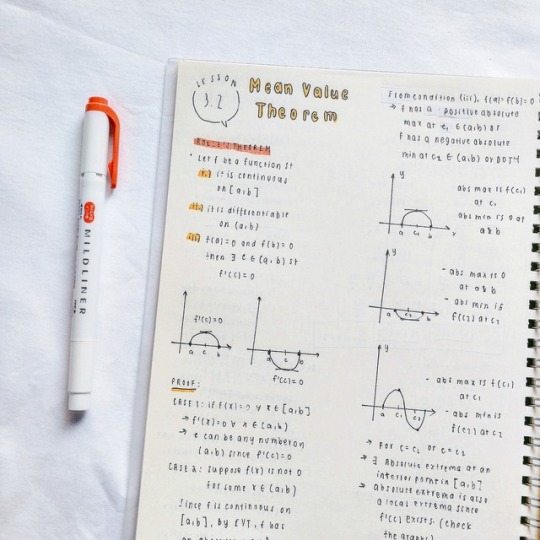 MILDLINER
LESSON
3.2
Mean Value
Theorem
ROLLE'S THEOREM
Let f be a function st
i.) it is continuous
on [a,b]
ii.) it is differentiable
on (a,b)
iii) f(a)=0 and f(b)=0
then ∃ c ∈ (a,b) st
f'(c)=0
f'(c)=0
a c b
a c b
f'(c)=0
PROOF:
CASE 1: if f(x)=0 ∀ x ∈ [a,b]
→ f'(x)=0 ∀ x ∈ (a,b)
→ c can be any number on
(a,b) since f'(c)=0
CASE 2: suppose f(x) is not 0
for some x ∈ (a,b)
Since f is continuous on
[a,b], by EVT, f has
From condition (iii), f(a)=f(b)=0
→ f has a positive absolute
max at c₁ ∈ (a,b) or
f has a negative absolute
min at c₂ ∈ (a,b) or BOTH
y
a c₁ b x
abs max is f(c₁)
at c₁
abs min is 0 at
a & b
y
a c₂ b
- abs max is 0
at a & b
- abs min is
f(c₂) at c₂
y
a c₁ c₂ b
- abs max is f(c₁)
at c₁
- abs min is
f(c₂) at c₂
→ For c=c₁ or c=c₂
→ ∃ Absolute extrema at an
interior point in [a,b]
→ absolute extrema is also
a local extrema since
f'(c) exists. (check
the graphs)